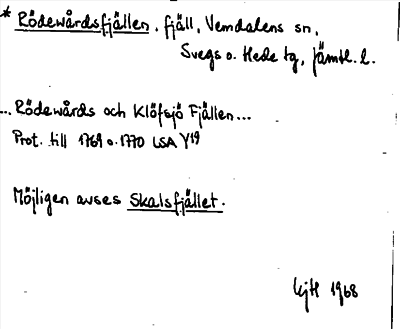 * Rödewårdsfjällen, fjäll, Vemdalens sn,
Svegs o. Hede tg, Jämtl. l.
... Rödewårds och Klöfsjö Fjällen...
Prot. till 1769 o. 1770 LSA Y19
Möjligen avses Skalsfjället.
1968